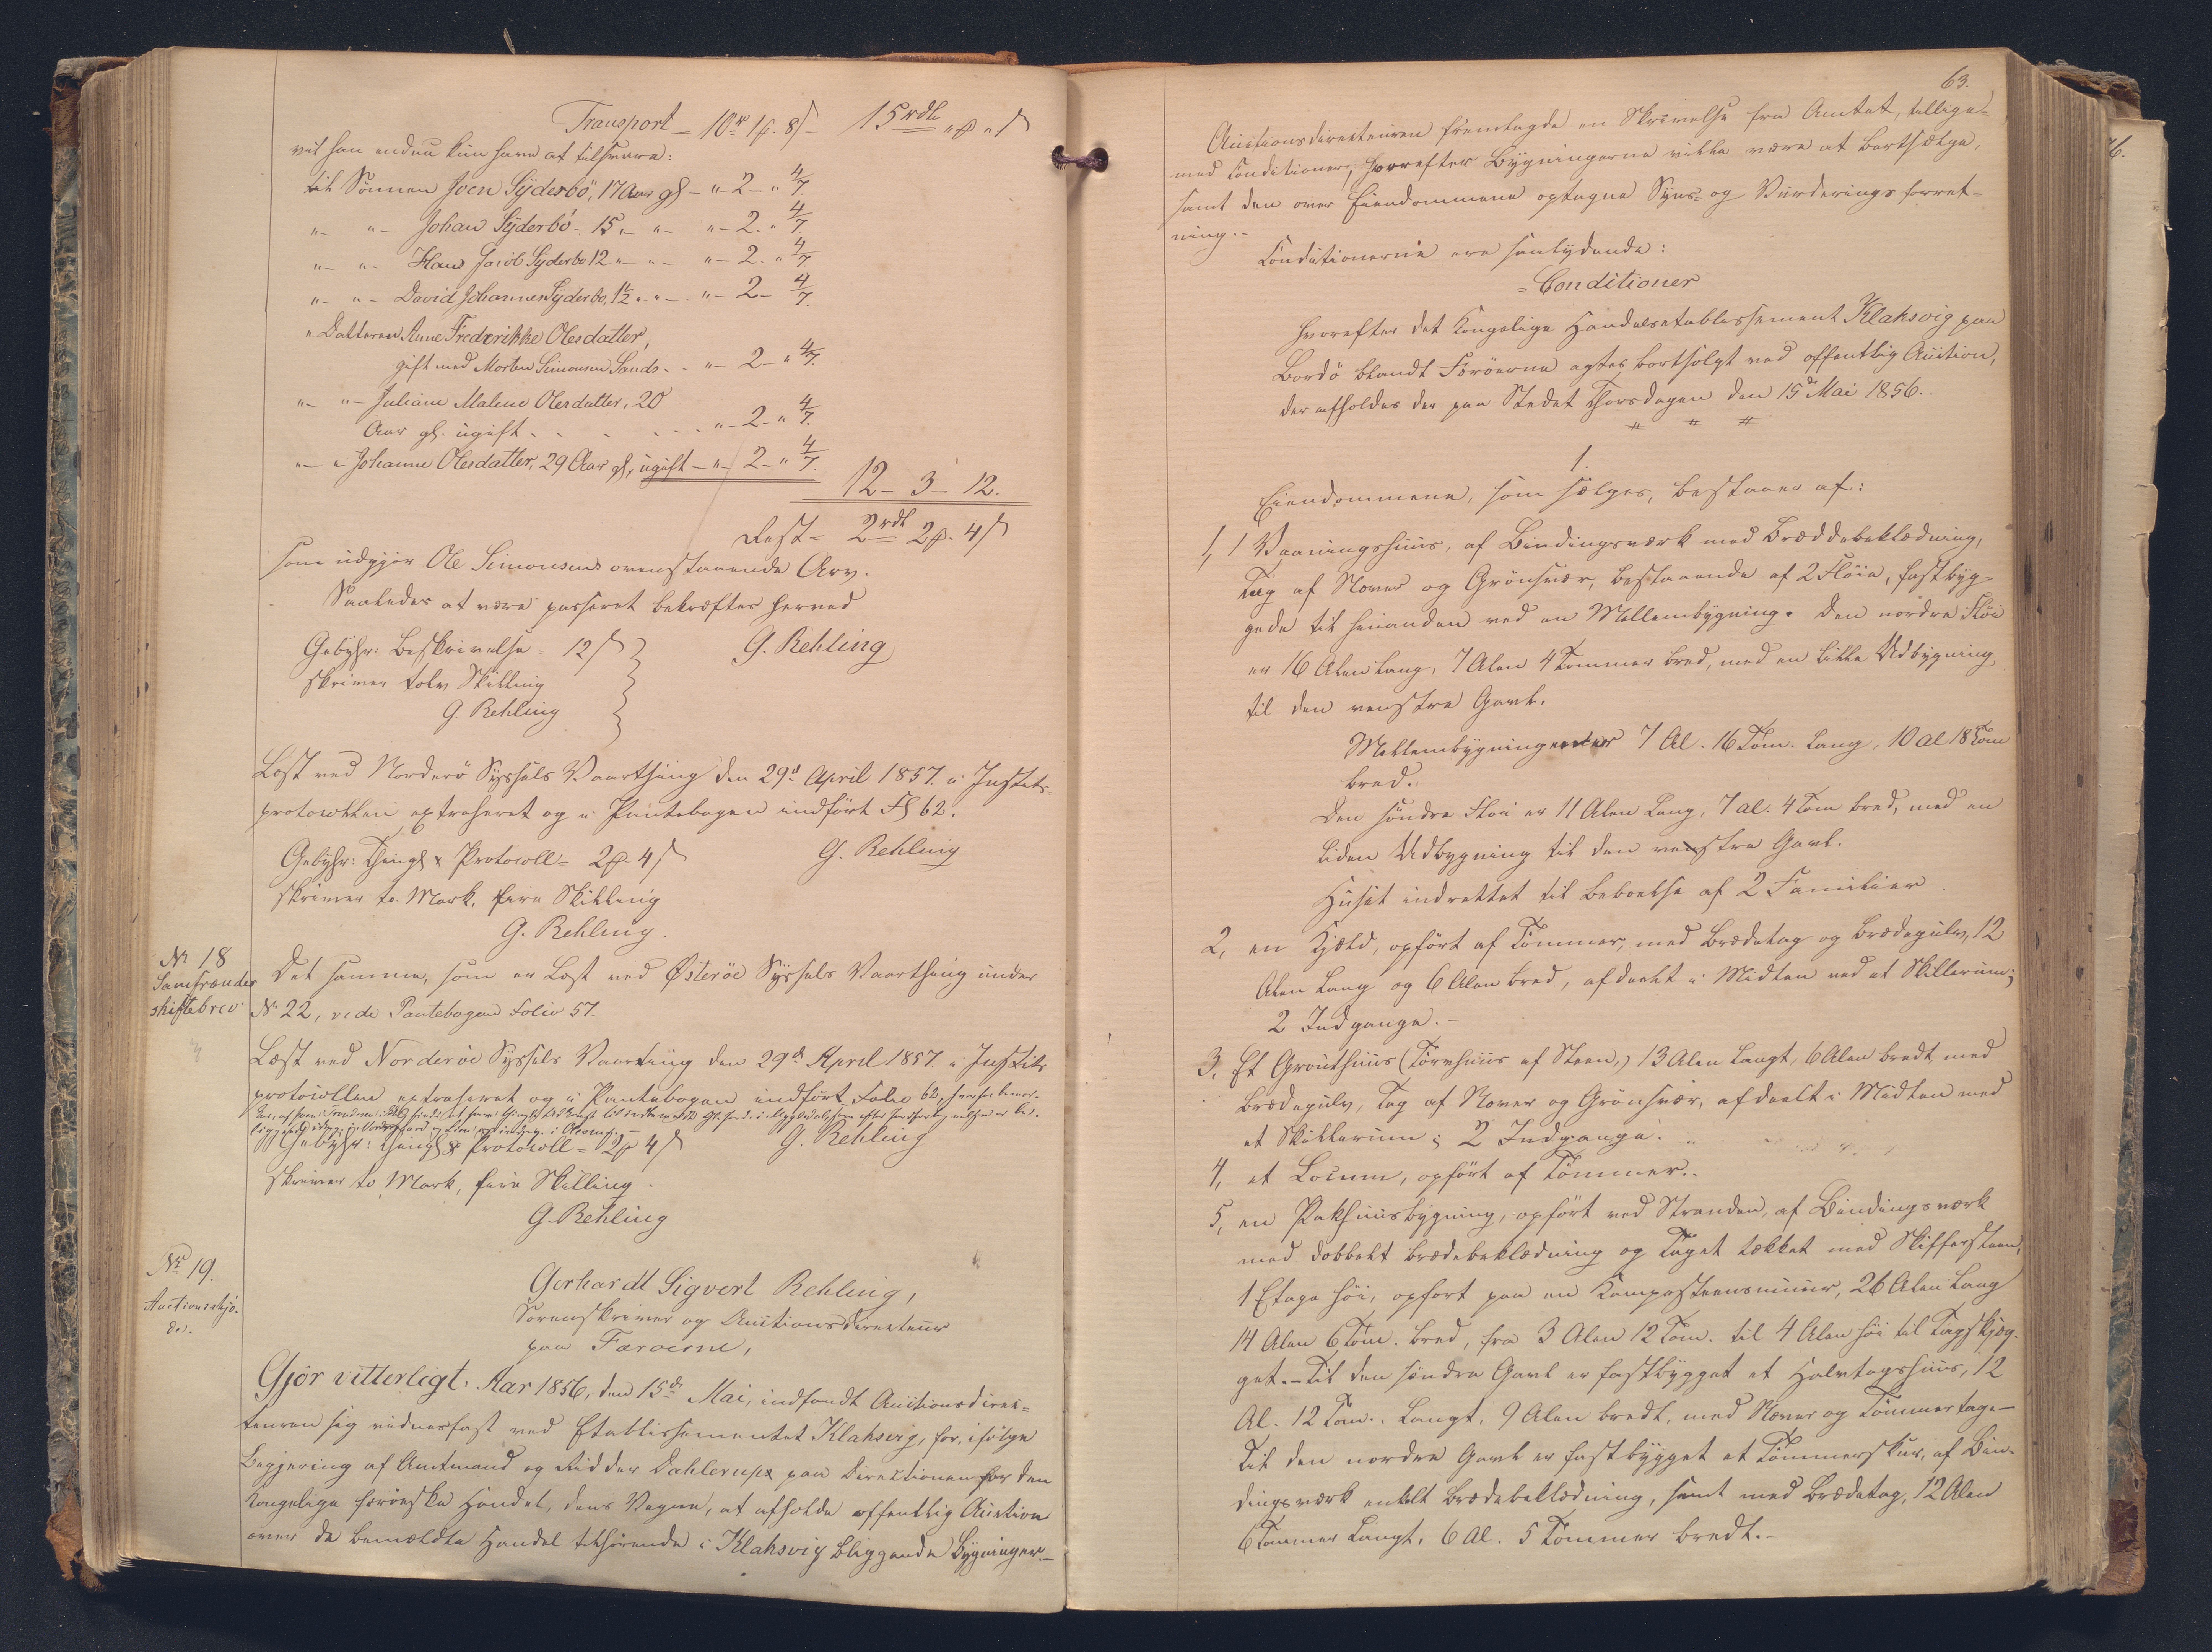 Transport - 10 rd 1 ß. 8 s - 15 rdl " ß " s
vil han endnu kun have at tilsvare:
til Sönnen Joen Syderbö, 17 Aar gl - " - 2 - " 4/7.
" - " - Johan Syderbö - 15 " - " - " - 2. " 4/7
" - " - Hans Jacob Syderbo 12 " - " - " - 2. " 4/7
" - " - David Johannes Syderbo, 1½ " - " - " - 2 - 4/7.
" Datteren Anne Frederikke Olesdatter,
gift med Morten Simonsen Sands - " - 2 - " 4/7.
" - " - Juliane Malene Olesdatter, 20
Aar gl. ugift - - - - " - 2 - " 4/7.
" - " Johanne Olesdatter, 29 Aar gl, ugift - " - 2 - " 4/7.
12 - 3 - 12.
Rest = 2 rdl 2 ß. 4 s
som udgjör Ole Simonsens ovenstaaende Arv.
Saaledes at være passeret bekræftes herved
Gebyhr: Beskrivelse = 12 s G. Rehling
skriver tolv Skilling
G. Rehling
Læst ved Norderö Syssels Vaarthing den 29d April 1857. i Justits-
protocollen extraheret og i Pantebogen indfört Fol 62.
Gebyhr: Thingl & Protocoll = 2 ß 4 s G. Rehling
skriver to Mark, fire Skilling
G. Rehling.
Nr 18
Samfrænder
skiftebrev
Det samme, som er Læst ved Österöe Syssels Vaarthing under
Nr 22, vide Pantebogens Folio 57.
Læst ved Norderöe Syssels Vaarting den 29d April 1857. i Justits
protocollen extraheret og i Pantebogen indfört Folio 62,
Gebyhr: Thingl & Protocoll = 2 ß 4 s G. Rehling
skriver to Mark, fire Skilling.
G. Rehling
Nr 19.
Auctionsskjö-
de.
Gerhardt Sigvert Rehling,
Sorenskriver og Auctionsdirecteur
paa Færoerne,
Gjör vitterligt: Aar 1856, den 15d Mai, indfandt Auctionsdirec-
teuren sig vidnesfast ved Etablissementet Klaksvig, for, ifölge
Begjering af Amtmand og Ridder Dahlerup, paa Directionen for den
Kongelige færöeske Handel, dens Vegne, at afholde offentlig Auction
over de bemeldte Handel tilhörende i Klaksvig beliggende Bygninger.-
63.
Auctionsdirecteuren fremlagde en Skrivelse fra Amtet, tillige-
med Conditioner, hvorefter Bygningerne ville være at bortsælge,
samt den over Eiendommene optagne Syns- og Vurderings forret-
ning.-
Conditionerne ere saalydende:
"Conditioner
hvorefter det Kongelige Handelsetablissement Klaksvig paa
Bordö blandt Færöerne agtes bortsolgt ved offentlig Auction,
der afholdes der paa Stedet Thorsdagen den 15de Mai 1856.
1.
Eiendommene, som sælges, bestaaer af:
1, 1 Vaaningshuus, af Bindingsværk med Bræddebeklædning,
Tag af Næver og Grönsvær, bestaaende af 2 Flöie, fastbyg-
gede til hinanden ved en Mellembygning. Den nordre Flöi
er 16 Alen lang, 7 Alen 4 Tommer bred, med en lille Udbygning
til den venstre Gavl.
Mellembygningen er 7 Al. 16 Tom. lang, 10 al 18 Tom
bred.
Den söndre Flöi er 11 Alen lang, 7 al. 4 Tom bred, med en
liden Udbygning til den venstre Gavl.
Huset indrettet til Beboelse af 2 Familier.
2, en Hjald, opfört af Tömmer, med Brædetag og Brædegulv, 12
Alen lang og 6 Alen bred, afdeelt i Midten ved et Skillerum;
2 Indgange.-
3, Et Grouthuus (Törvhuus af Steen,) 13 Alen langt, 6 Alen bredt med
Brædegulv, Tag af Næver og Grönsvær, afdeelt i Midten med
et Skillerum; 2 Indgange.
4, et Locum, opfört af Tömmer.
5, en Pakhuusbygning, opfört ved Stranden, af Bindingsværk
med dobbelt Brædebeklædning og Taget tækket med Skiffersteen,
1 Etage höi, opfört paa en Kampesteensmuur, 26 Alen lang
14 Alen 6 Tom. bred, fra 3 Alen 12 Tom. til 4 Alen höi til Tagskjæg-
get.- Til den söndre Gavl er fastbygget et Halvtagshuus, 12
Al. 12 Tom. langt, 9 Alen bredt, med Næver og Tömmertag.-
Til den nordre Gavl er fastbygget et Tömmerskur, af Bin-
dingsværk enkelt Brædebeklædning, samt med Brædetag, 12 Alen
6 Tommer langt, 6 Al. 5 Tommer bredt.-